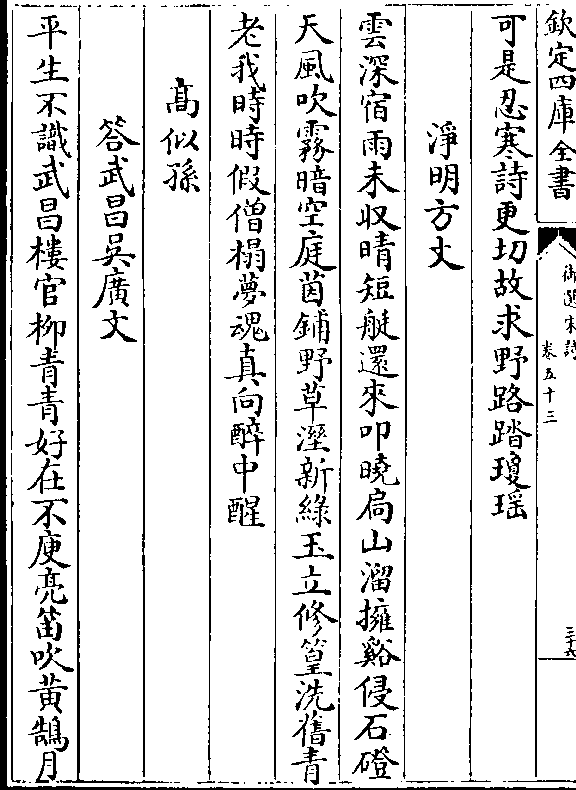 欽定四庫全書
御選宋詩
卷五十三
三十六
可是忍寒詩更切故求野路踏瓊瑤
淨明方丈
雲深宿雨未収晴短艇還來叩曉扃山溜擁谿侵石磴
天風吹霧暗空庭茵鋪野草溼新綠玉立修篁洗舊青
老我時時假僧榻夢魂真向醉中醒
髙似孫
答武昌吳廣文
平生不識武昌樓官柳青青好在不庾亮笛吹黃鵠月